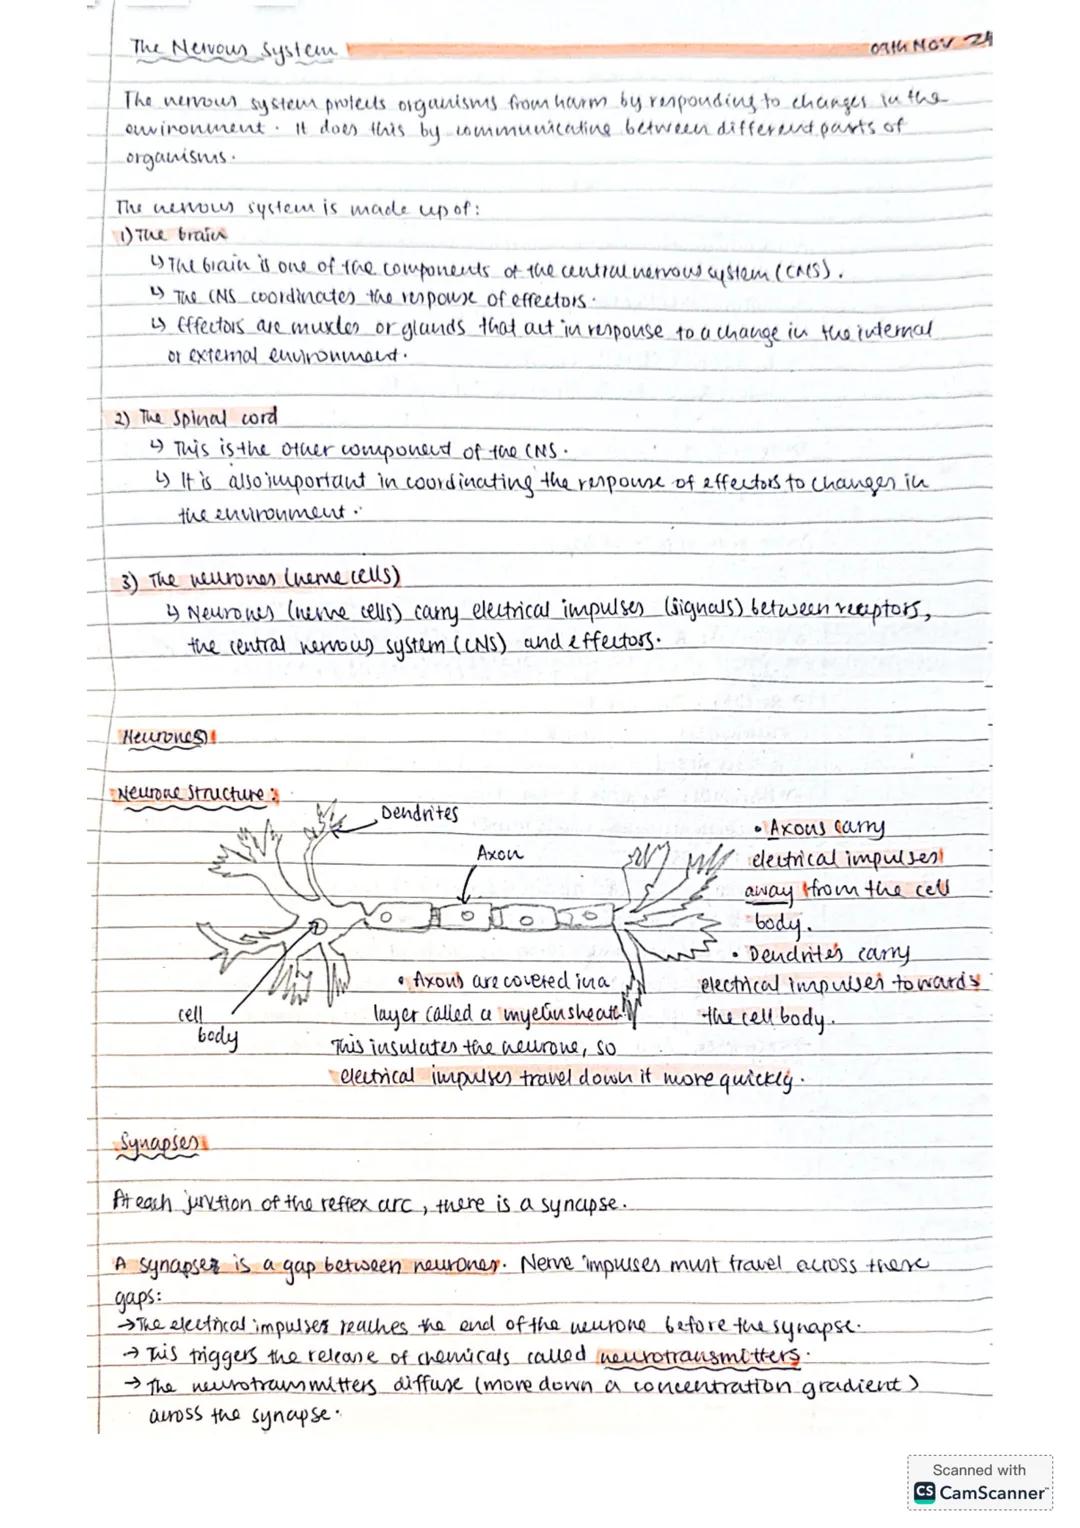 The Nervous System 07th NOV 24
The nervous system protects organisms from harm by responding to changes in the
environment. It does this by communicating between different parts of
organisms.
The nervous system is made up of:
1) The brain
↳ The brain is one of the components of the central nervous system (CNS).
↳ The CNS coordinates the response of effectors.
↳ Effectors are muscles or glands that act in response to a change in the internal
or external environment.
2) The Spinal cord
↳ This is the other component of the CNS.
↳ It is also important in coordinating the response of effectors to changes in
the environment.
3) The neurones (nerve cells)
↳ Neurones (nerve cells) carry electrical impulses (signals) between receptors,
the central nervous system (CNS) and effectors.
Neurones
Neurone Structure:
Dendrites
Axon
cell
body
• Axons carry
electrical impulses
away from the cell
body.
• Dendrites carry
electrical impulses towards
the cell body.
• Axons are covered in a
layer called a myelin sheath.
This insulates the neurone, so
electrical impulses travel down it more quickly.
Synapses
At each junction of the reflex arc, there is a synapse.
A synapse is a gap between neurones. Nerve impulses must travel across these
gaps:
→ The electrical impulses reaches the end of the neurone before the synapse.
→ This triggers the release of chemicals called neurotransmitters.
→ The neurotransmitters diffuse (move down a concentration gradient)
across the synapse.
Scanned with
CS CamScanner